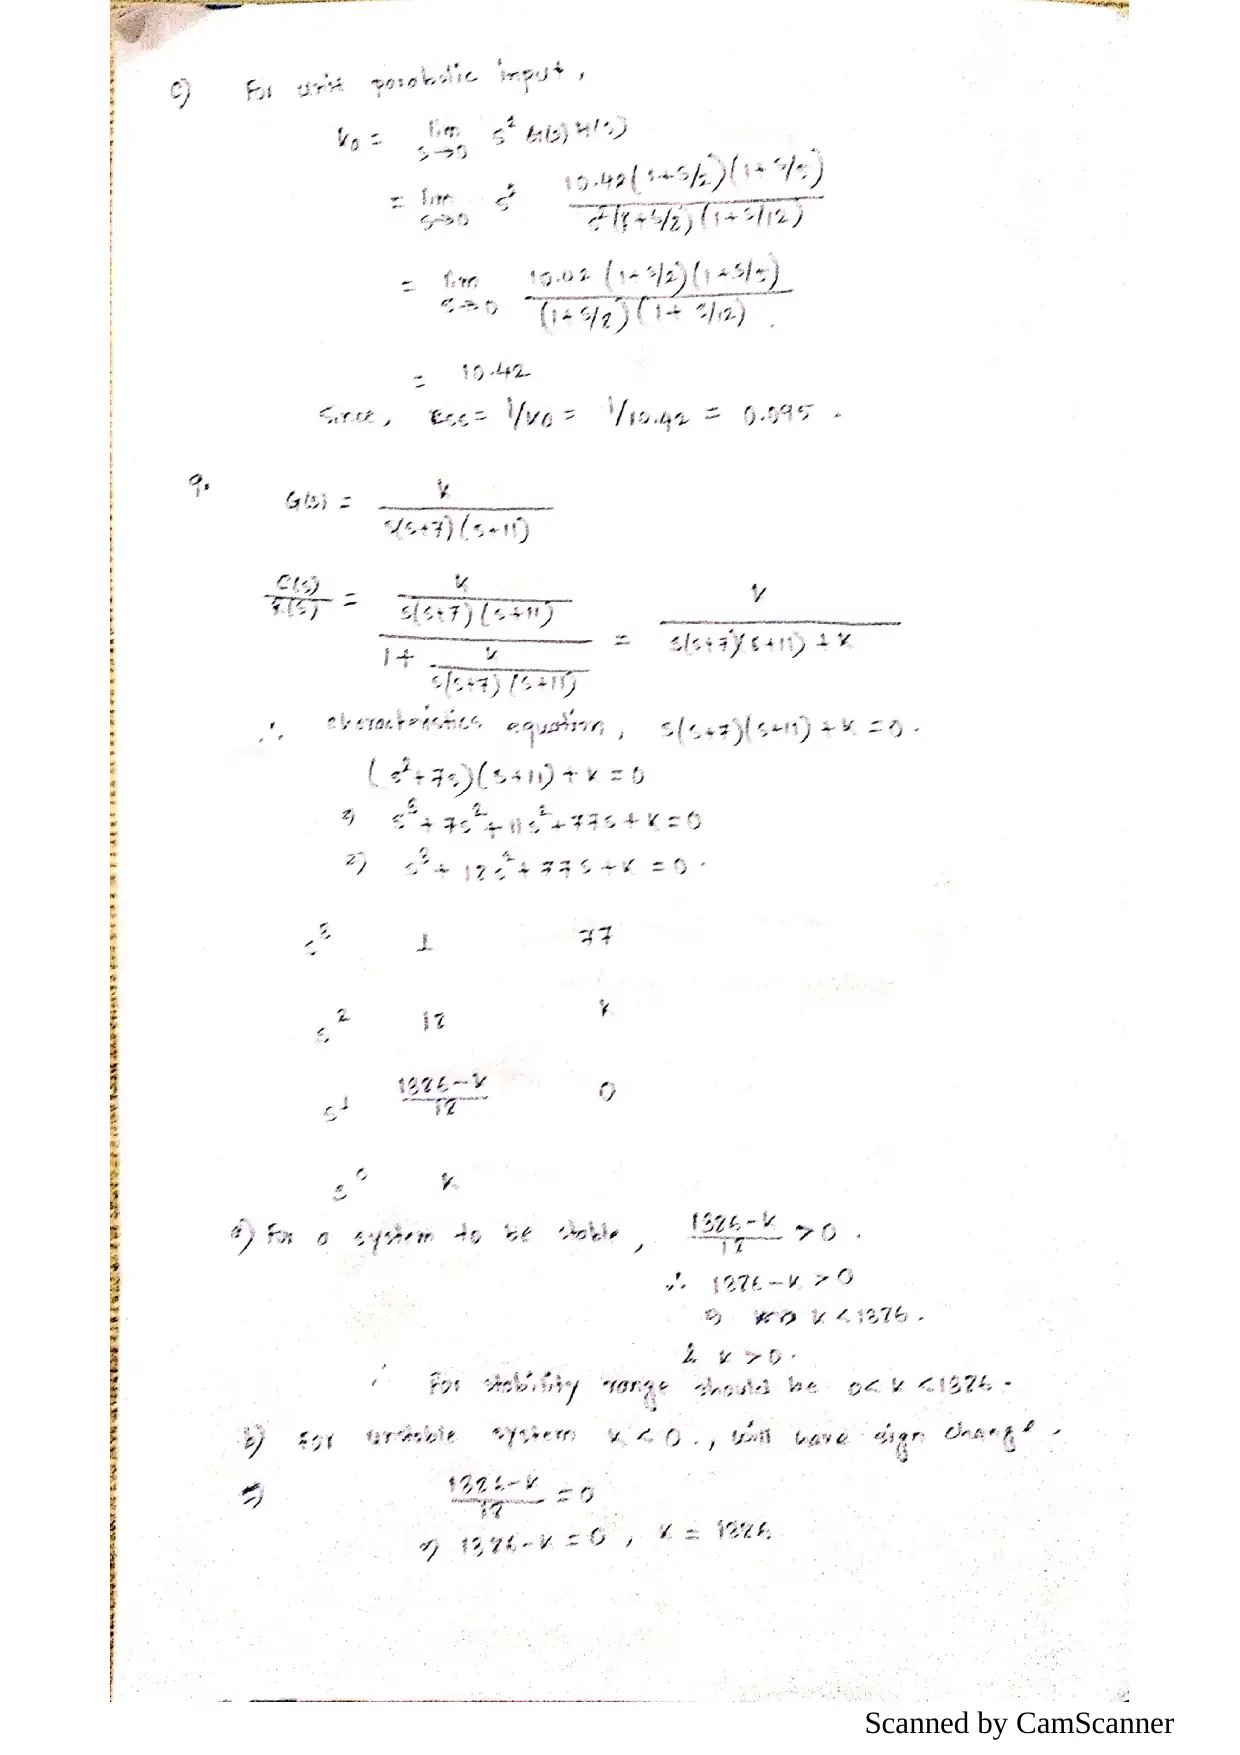 c) For unit parabolic input,
Ka = lim s→0 s² G(s) H(s)
= lim s→0 s² 10.42(1+s/2)(1+s/5) / s²(1+s/8)(1+s/12)
= lim s→0 10.42 (1+s/2)(1+s/5) / (1+s/8)(1+s/12).
= 10.42
Since, ess = 1/Ka = 1/10.42 = 0.095.
9. G(s) = K / s(s+7)(s+11)
C(s)/R(s) = K / s(s+7)(s+11) / 1 + K / s(s+7)(s+11) = K / s(s+7)(s+11) + K
∴ characteristics equation, s(s+7)(s+11) + K = 0.
(s²+7s)(s+11) + K = 0
⇒ s³ + 7s² + 11s² + 77s + K = 0
⇒ s³ + 18s² + 77s + K = 0.
s³ 1 77
s² 18 K
s¹ 1386-K / 18 0
s⁰ K
a) For a system to be stable, 1386-K / 18 > 0.
∴ 1386-K > 0
⇒ K < 1386.
& K > 0.
∴ For stability range should be 0 < K < 1386.
b) For unstable system K < 0., will have sign change.
c) 1386-K / 18 = 0
⇒ 1386-K = 0, K = 1386
Scanned by CamScanner